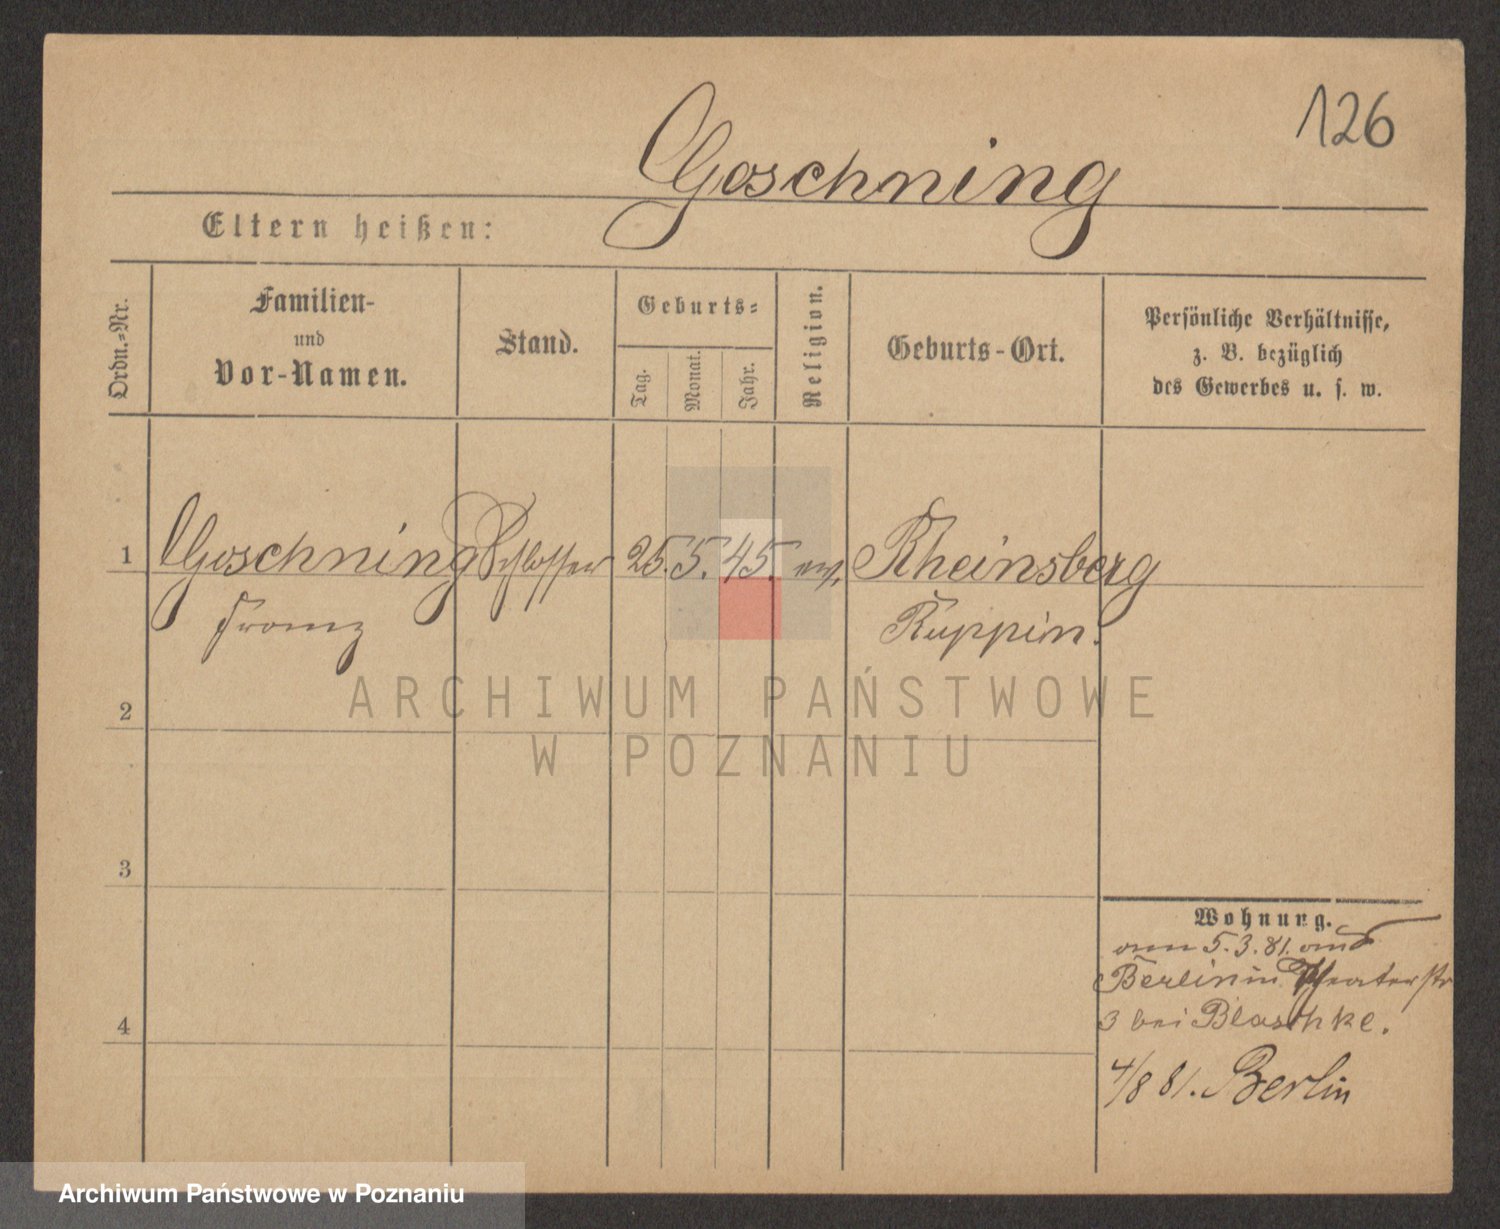 126
Goschning
Eltern heißen:
Ordn.=Nr.
Familien-
und
Vor-Namen.
Stand.
Geburts=
Tag.
Monat.
Jahr.
Religion.
Geburts-Ort.
Persönliche Verhältnisse,
z. B. bezüglich
des Gewerbes u. s. w.
1 Goschning Schlosser 25. 5. 45. ev. Rheinsberg
Franz Ruppin.
ARCHIWUM PAŃSTWOWE
W POZNANIU
2
3
4
Wohnung.
am 5.3.81. aus
Berlin in Theaterstr
3 bei Blaschke.
4/8 81. Berlin
Archiwum Państwowe w Poznaniu